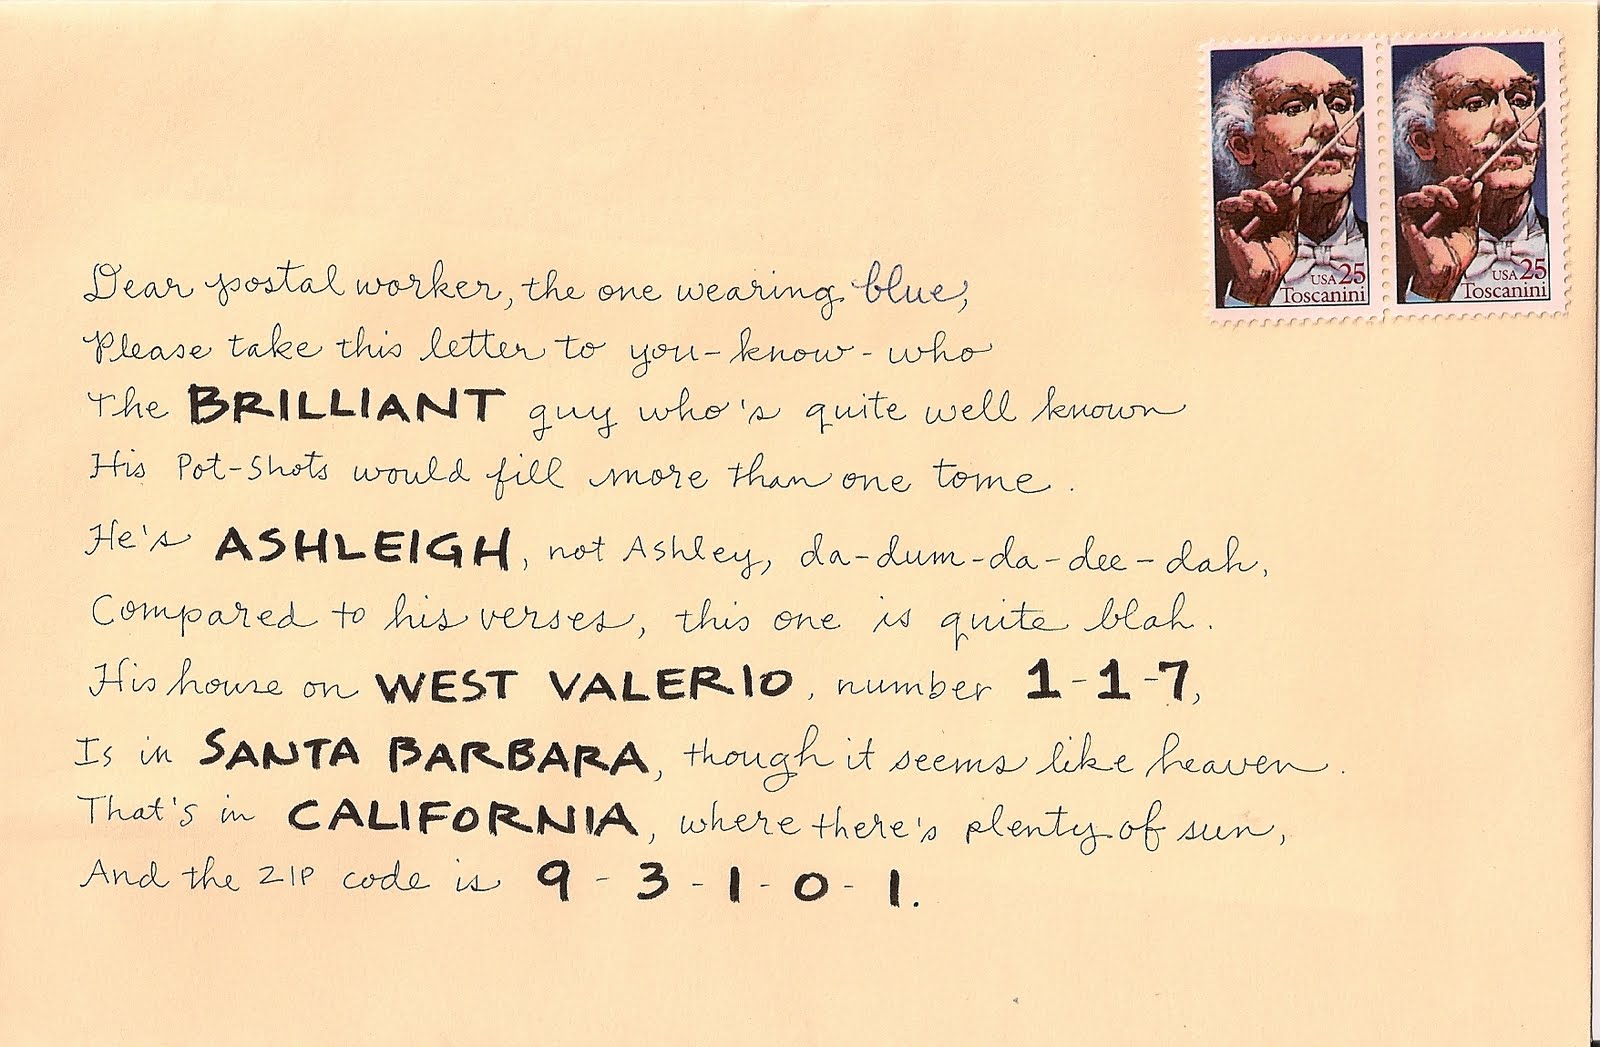 USA 25
Toscanini
USA 25
Toscanini
Dear postal worker, the one wearing blue,
Please take this letter to you-know-who
The BRILLIANT guy who's quite well known
His Pot-Shots would fill more than one tome.
He's ASHLEIGH, not Ashley, da-dum-da-dee-dah,
Compared to his verses, this one is quite blah.
His house on WEST VALERIO, number 1-1-7,
Is in SANTA BARBARA, though it seems like heaven.
That's in CALIFORNIA, where there's plenty of sun,
And the ZIP code is 9-3-1-0-1.